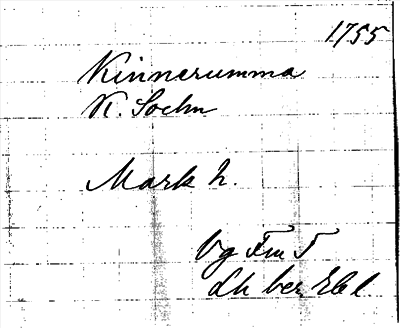 1755
Kinnerumma
K. Sochn
Mark h.
Vg Fm 5
Lh ber. Ebl